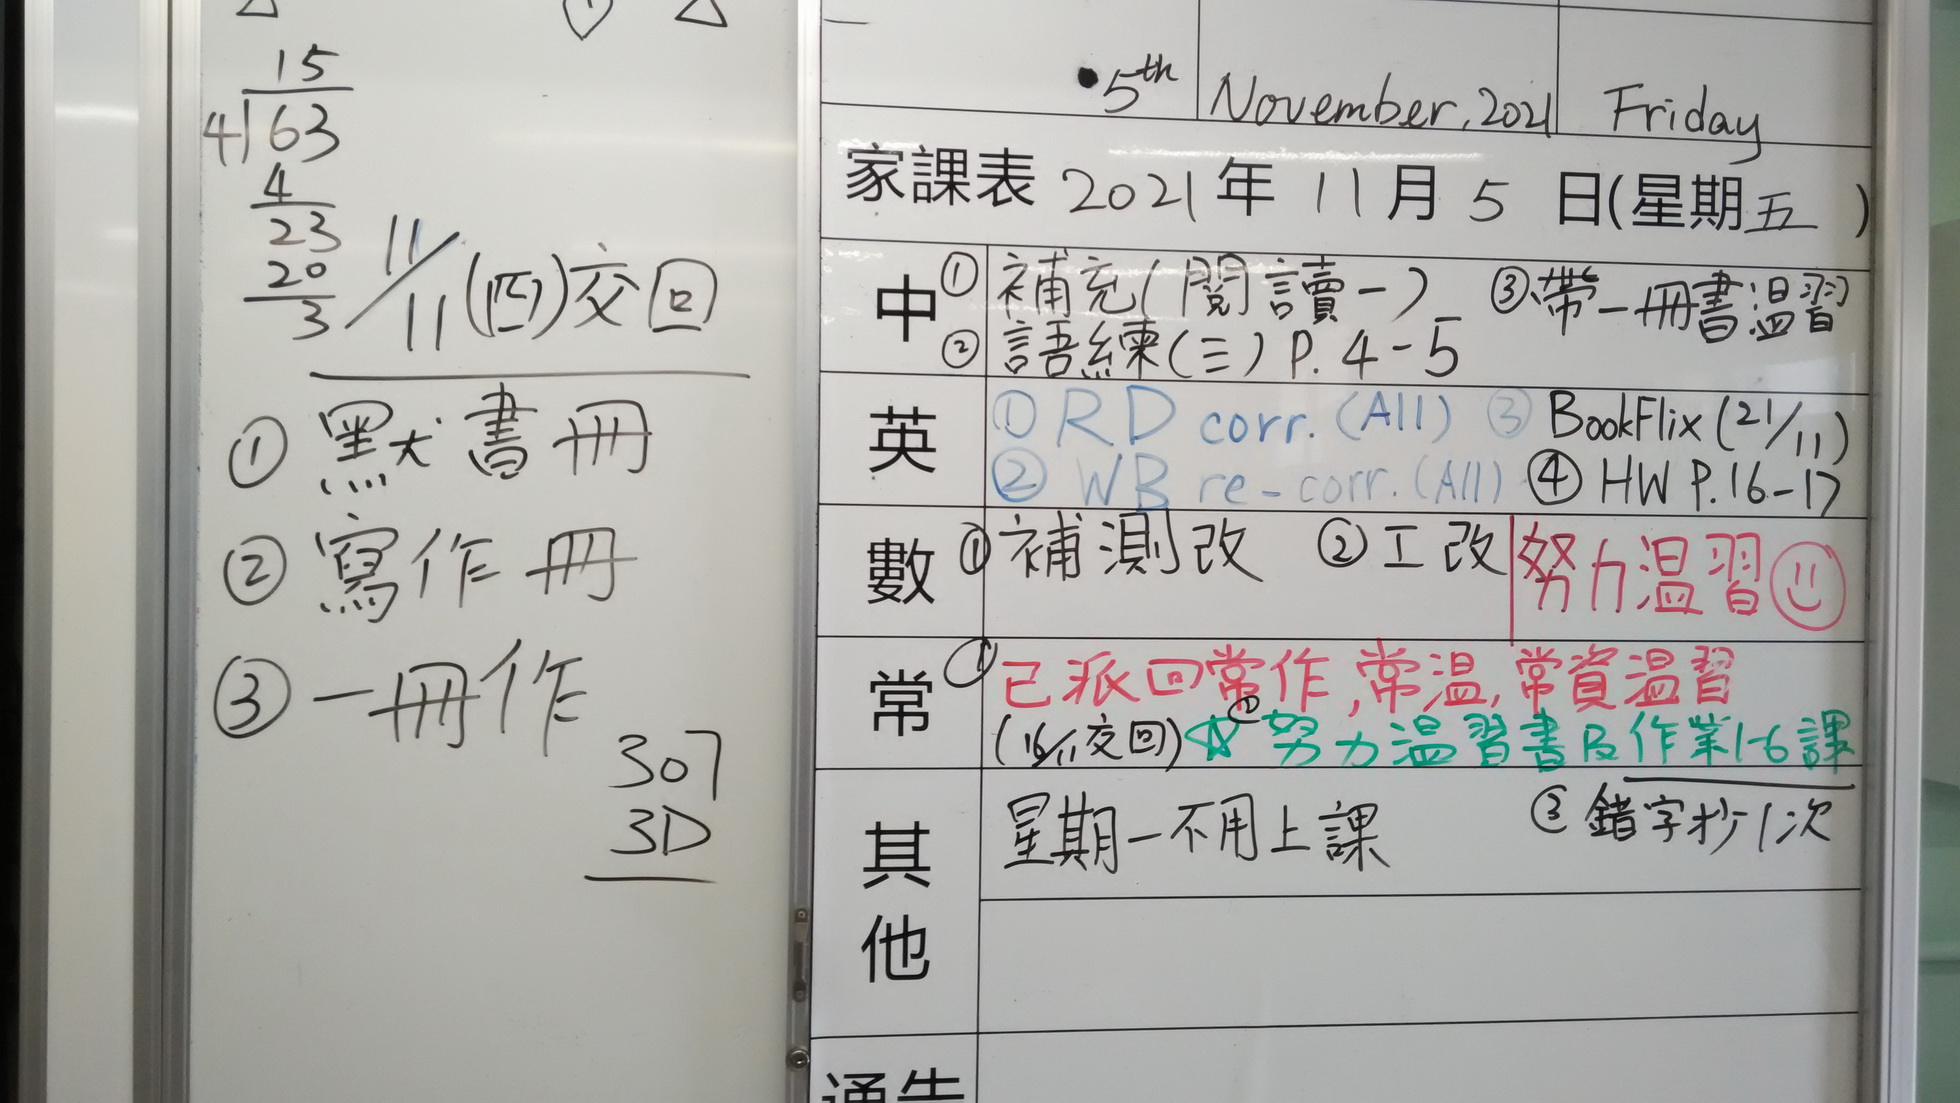 15
4 63
4
23
20
3
11/11 (四) 交回
① 默書冊
② 寫作冊
③ 一冊作
307
3D
5th November, 2021 Friday
家課表 2021年 11月 5 日(星期五)
中 ① 補充(閱讀一) ③帶一冊書温習
② 語練(三) P. 4-5
英 ① RD corr. (All) ③ BookFlix (21/11)
② WB re-corr. (All) ④ HW P.16-17
數 ① 補測改 ② 工改 努力温習
常 ① 已派回常作,常温,常資温習
(16/11交回) ☆② 努力温習書及作業1-6課
③ 錯字抄1次
其他 星期一不用上課
通告